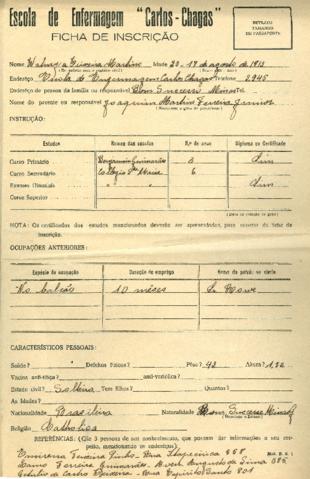 Escola de Enfermagem "Carlos-Chagas"
FICHA DE INSCRIÇÃO
RETRATO
TAMANHO
DE PASSAPORTE
Nome Idade 20-17 de agosto de 1913
Endereço Escola de Enfermagem Carlos Chagas Telefone 2945
Endereço de pessoa da familia ou responsável Bom Sucesso Minas
Nome do parente ou responsável Joaquim Martins Ferreira Junior
INSTRUÇÃO:
Estudos Nomes das escolas N.º de anos Diploma ou Certificado
Curso Primário Benjamin Guimarães 3 Sim
Curso Secundário Colégio Sta Maria 6
Exames Oficiais " " Sim
Curso Superior
NOTA: Os certificados dos estudos mencionados deverão ser apresentados, para constar da ficha de
inscrição.
OCUPAÇÕES ANTERIORES:
Espécie de ocupação Duração do emprego Nome do patrão ou chefe
10 mêses
CARACTERÍSTICOS PESSOAIS:
Saúde? Defeitos físicos? Pêso? 43 Altura? 1,52
Vacina anti-tífica? anti-variólica?
Estado civil? Solteira Tem Filhos? Quantos?
As Idades?
Nacionalidade Brasileira Naturalidade Bom Sucesso Minas
Religião Catholica
REFERÊNCIAS: (Dê 3 pessoas de seu conhecimento, que possam dar informações a seu res-
peito, mencionando os endereços)
Teixeira Pinho - Rua Itapecirica 658
Ferreira Guimarães - Augusto de Lima
Getulio de Carvalho Teixeira - Rua Espirito Santo 801